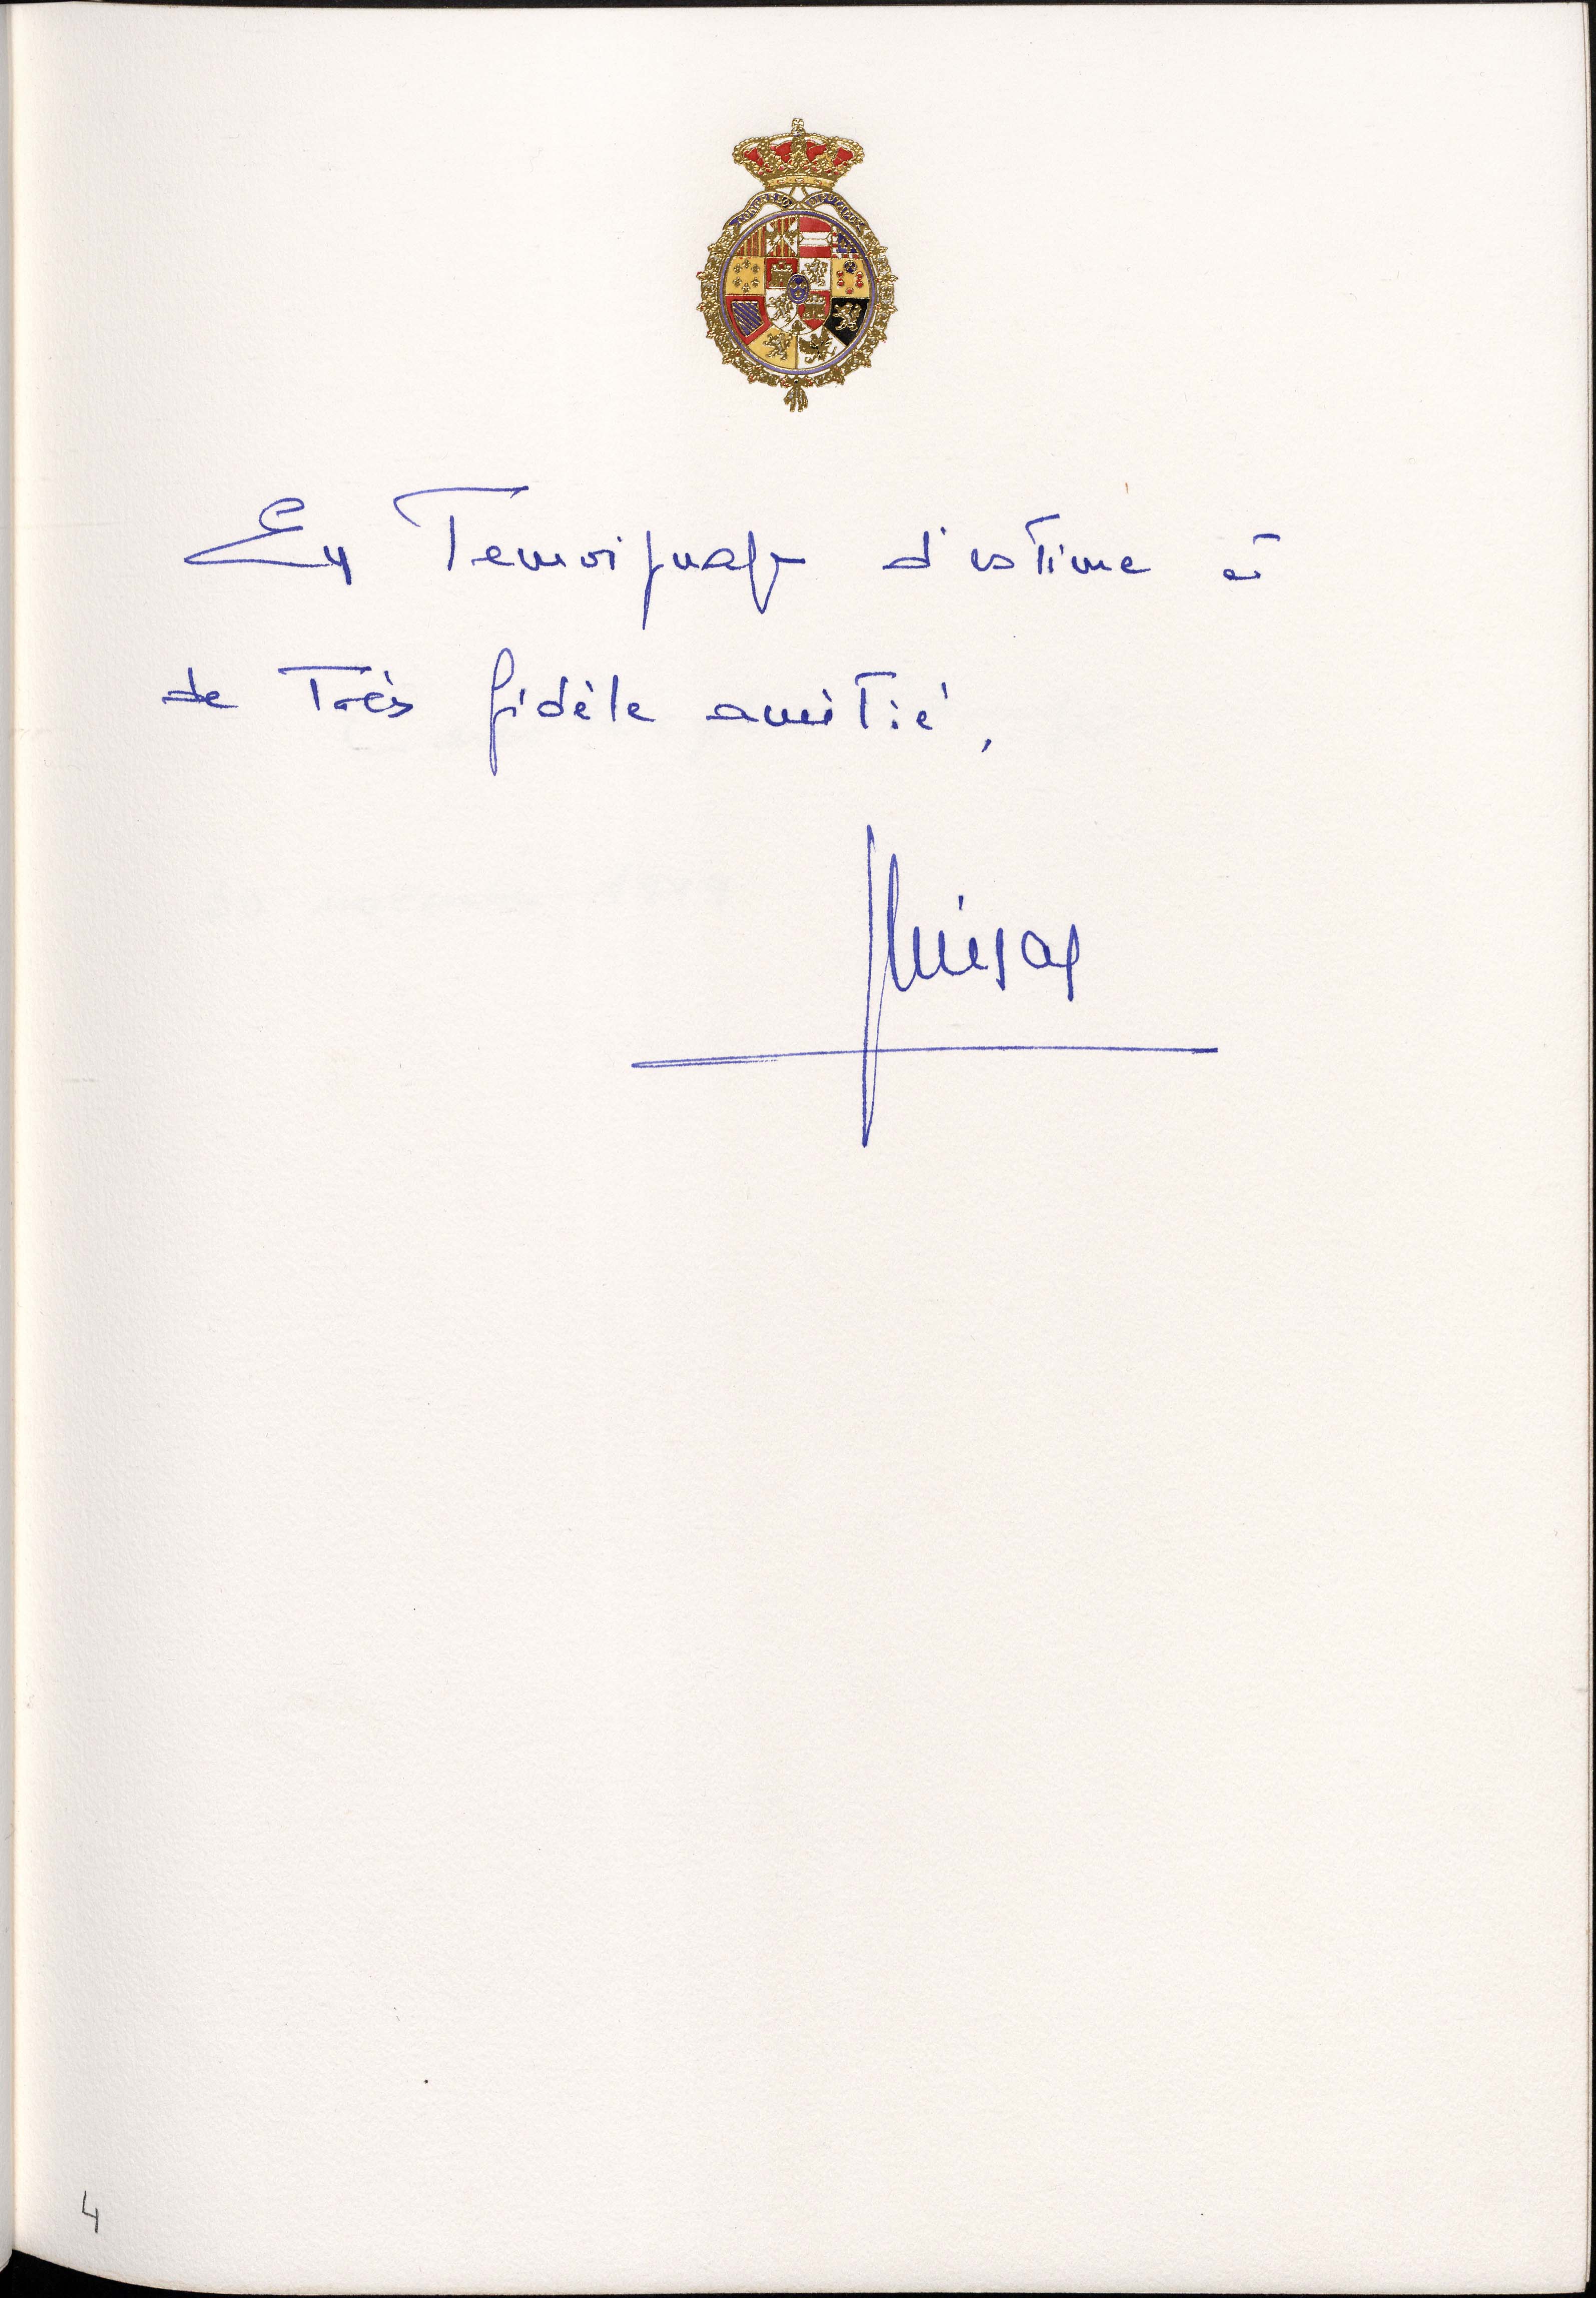 CONGRESO DIPUTADOS
En Temoignage d'estime et
de Très fidèle amitié,
4